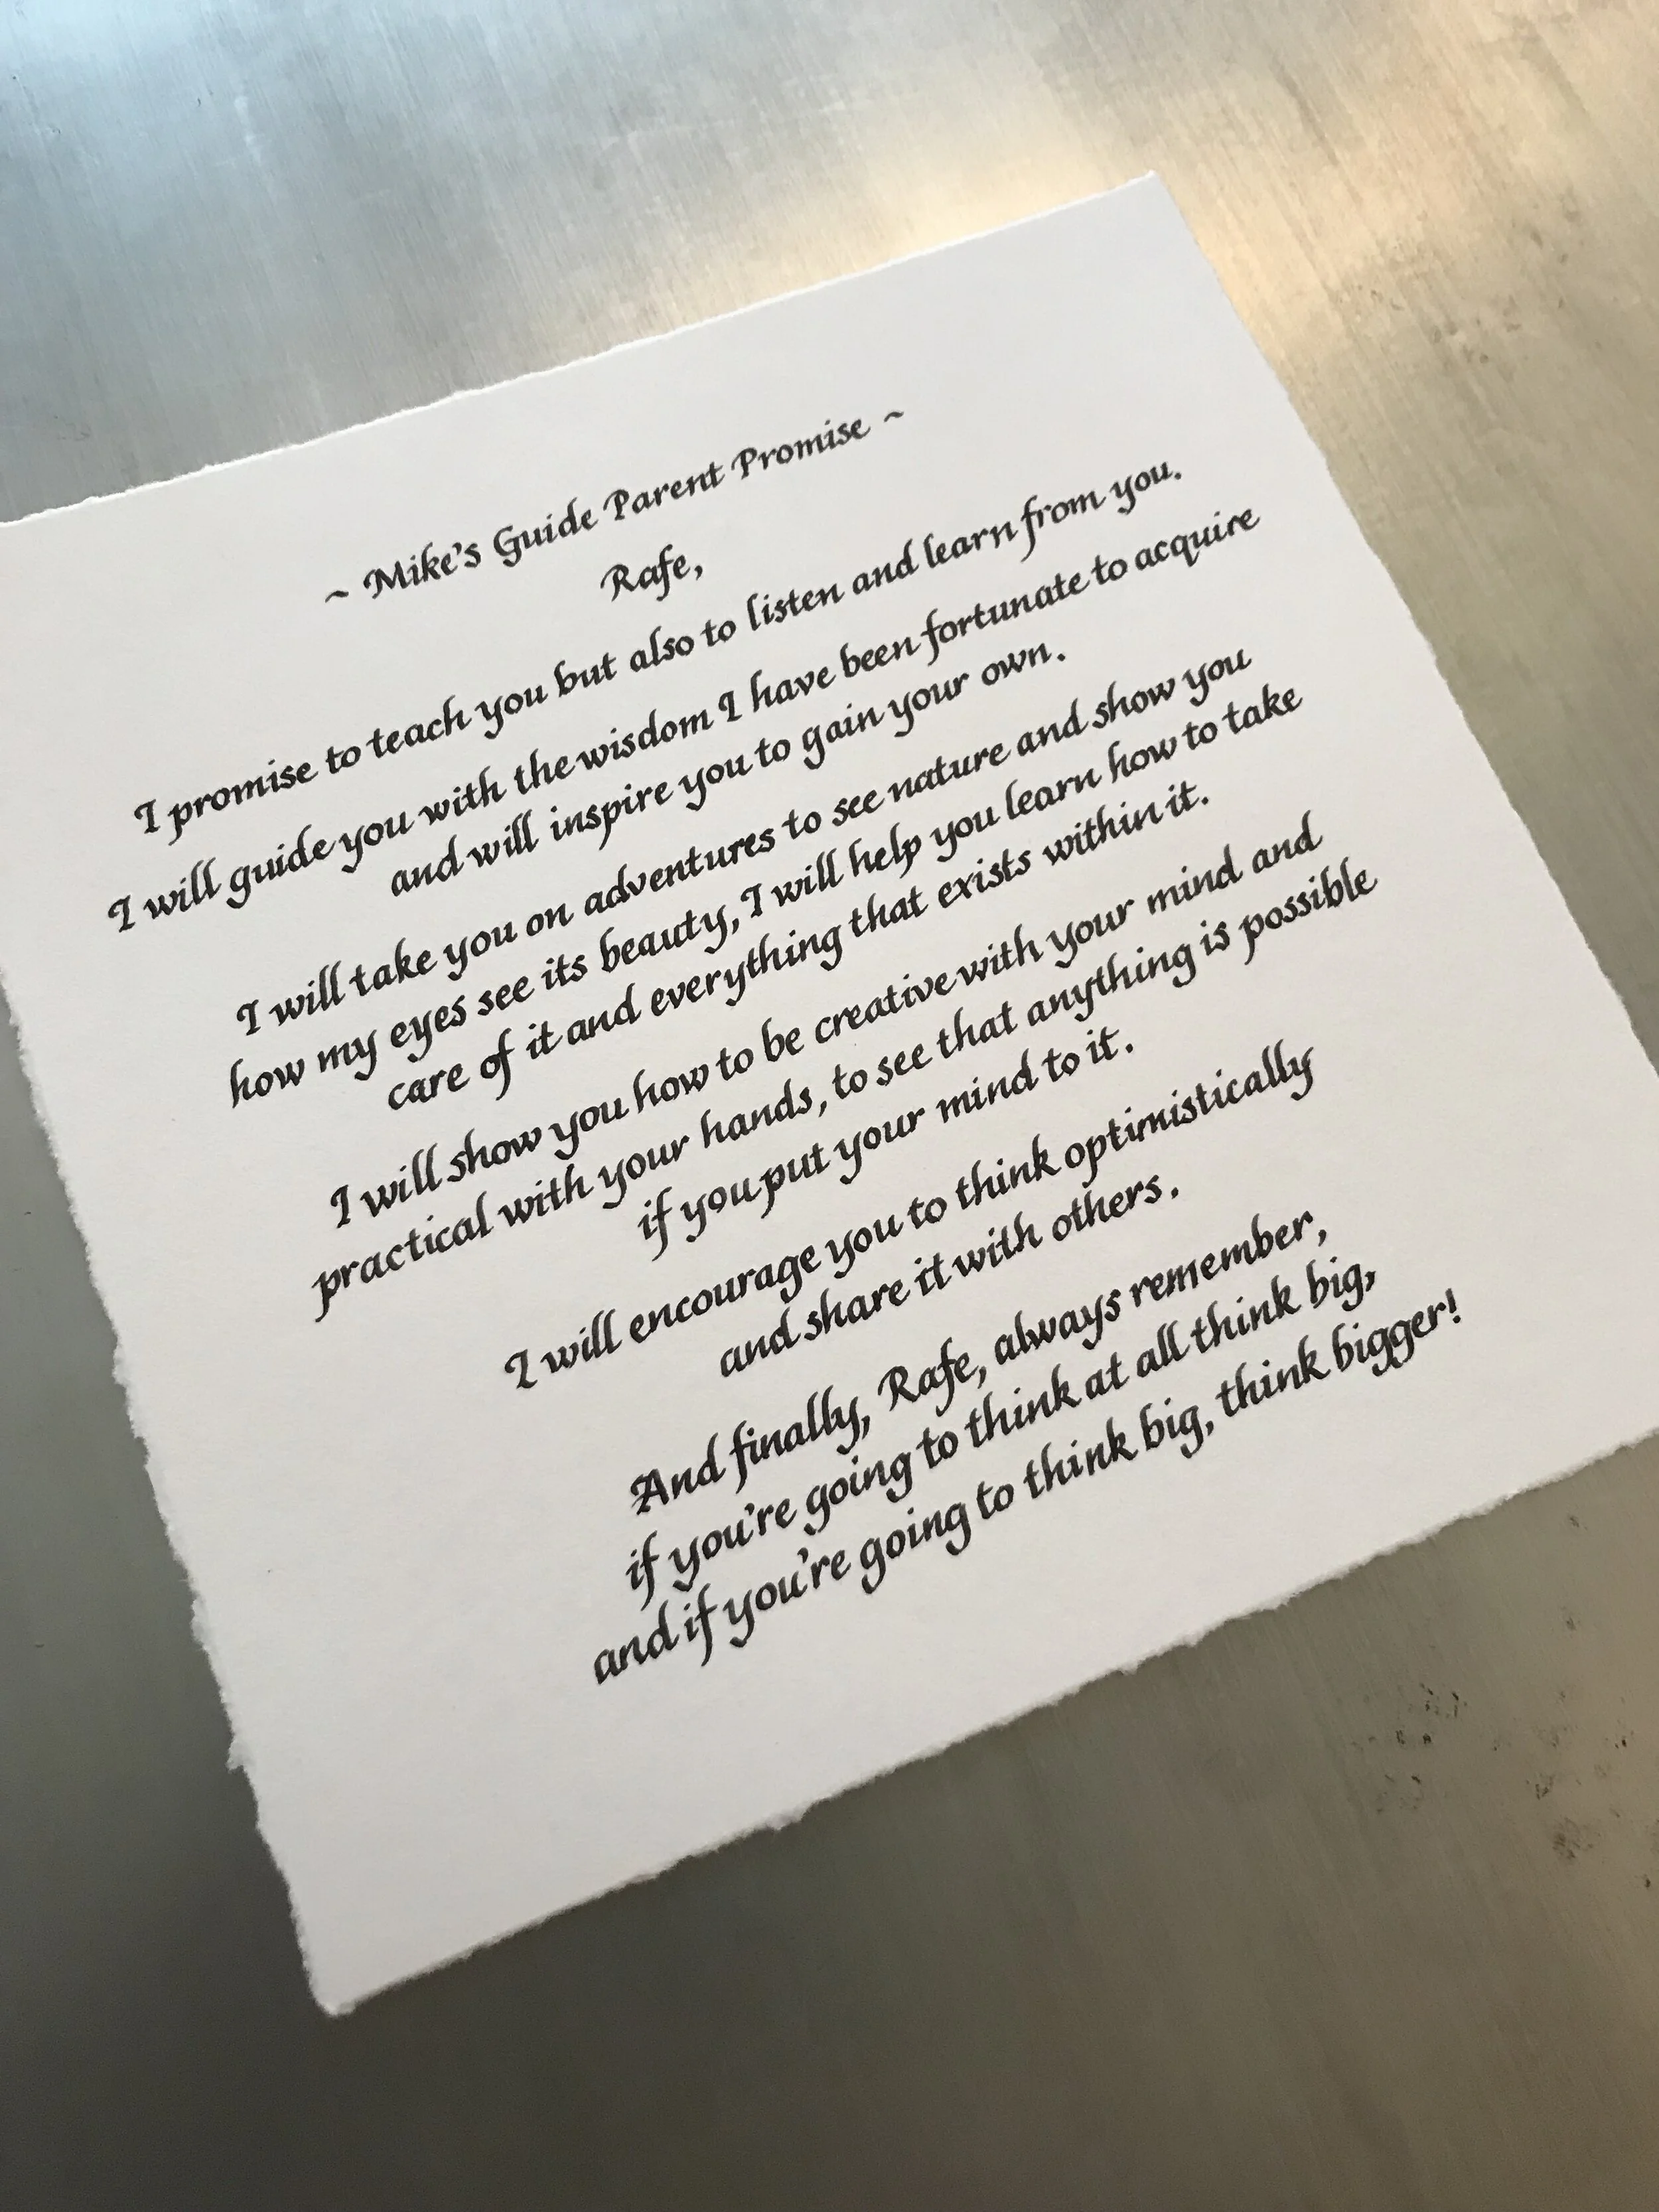 ~ Mike's Guide Parent Promise ~
Rafe,
I promise to teach you but also to listen and learn from you.
I will guide you with the wisdom I have been fortunate to acquire
and will inspire you to gain your own.
I will take you on adventures to see nature and show you
how my eyes see its beauty, I will help you learn how to take
care of it and everything that exists within it.
I will show you how to be creative with your mind and
practical with your hands, to see that anything is possible
if you put your mind to it.
I will encourage you to think optimistically
and share it with others.
And finally, Rafe, always remember,
if you're going to think at all think big,
and if you're going to think big, think bigger!